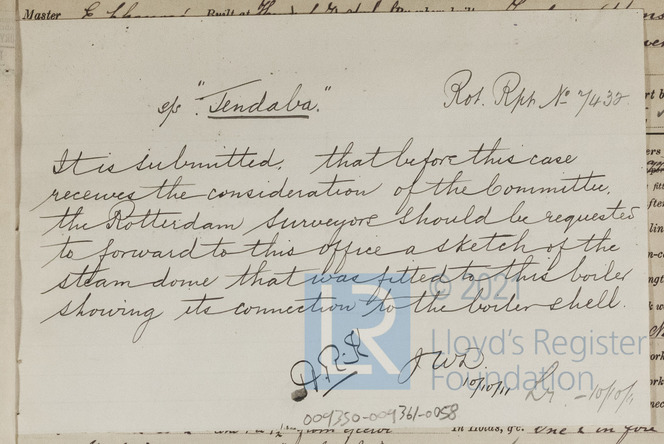 Master
s/s "Tendaba." Rot. Rpt. No 7432
It is submitted, that before this case
receives the consideration of the Committee,
the Rotterdam Surveyors should be requested
to forward to this office a sketch of the
steam dome that was fitted to this boiler
showing its connection to the boiler shell.
LR
© 2021
Lloyd's Register
Foundation
A.R.K JWD
10/10/11 10/10/11
009350-009361-0058
in Holds, &c. one & in fore